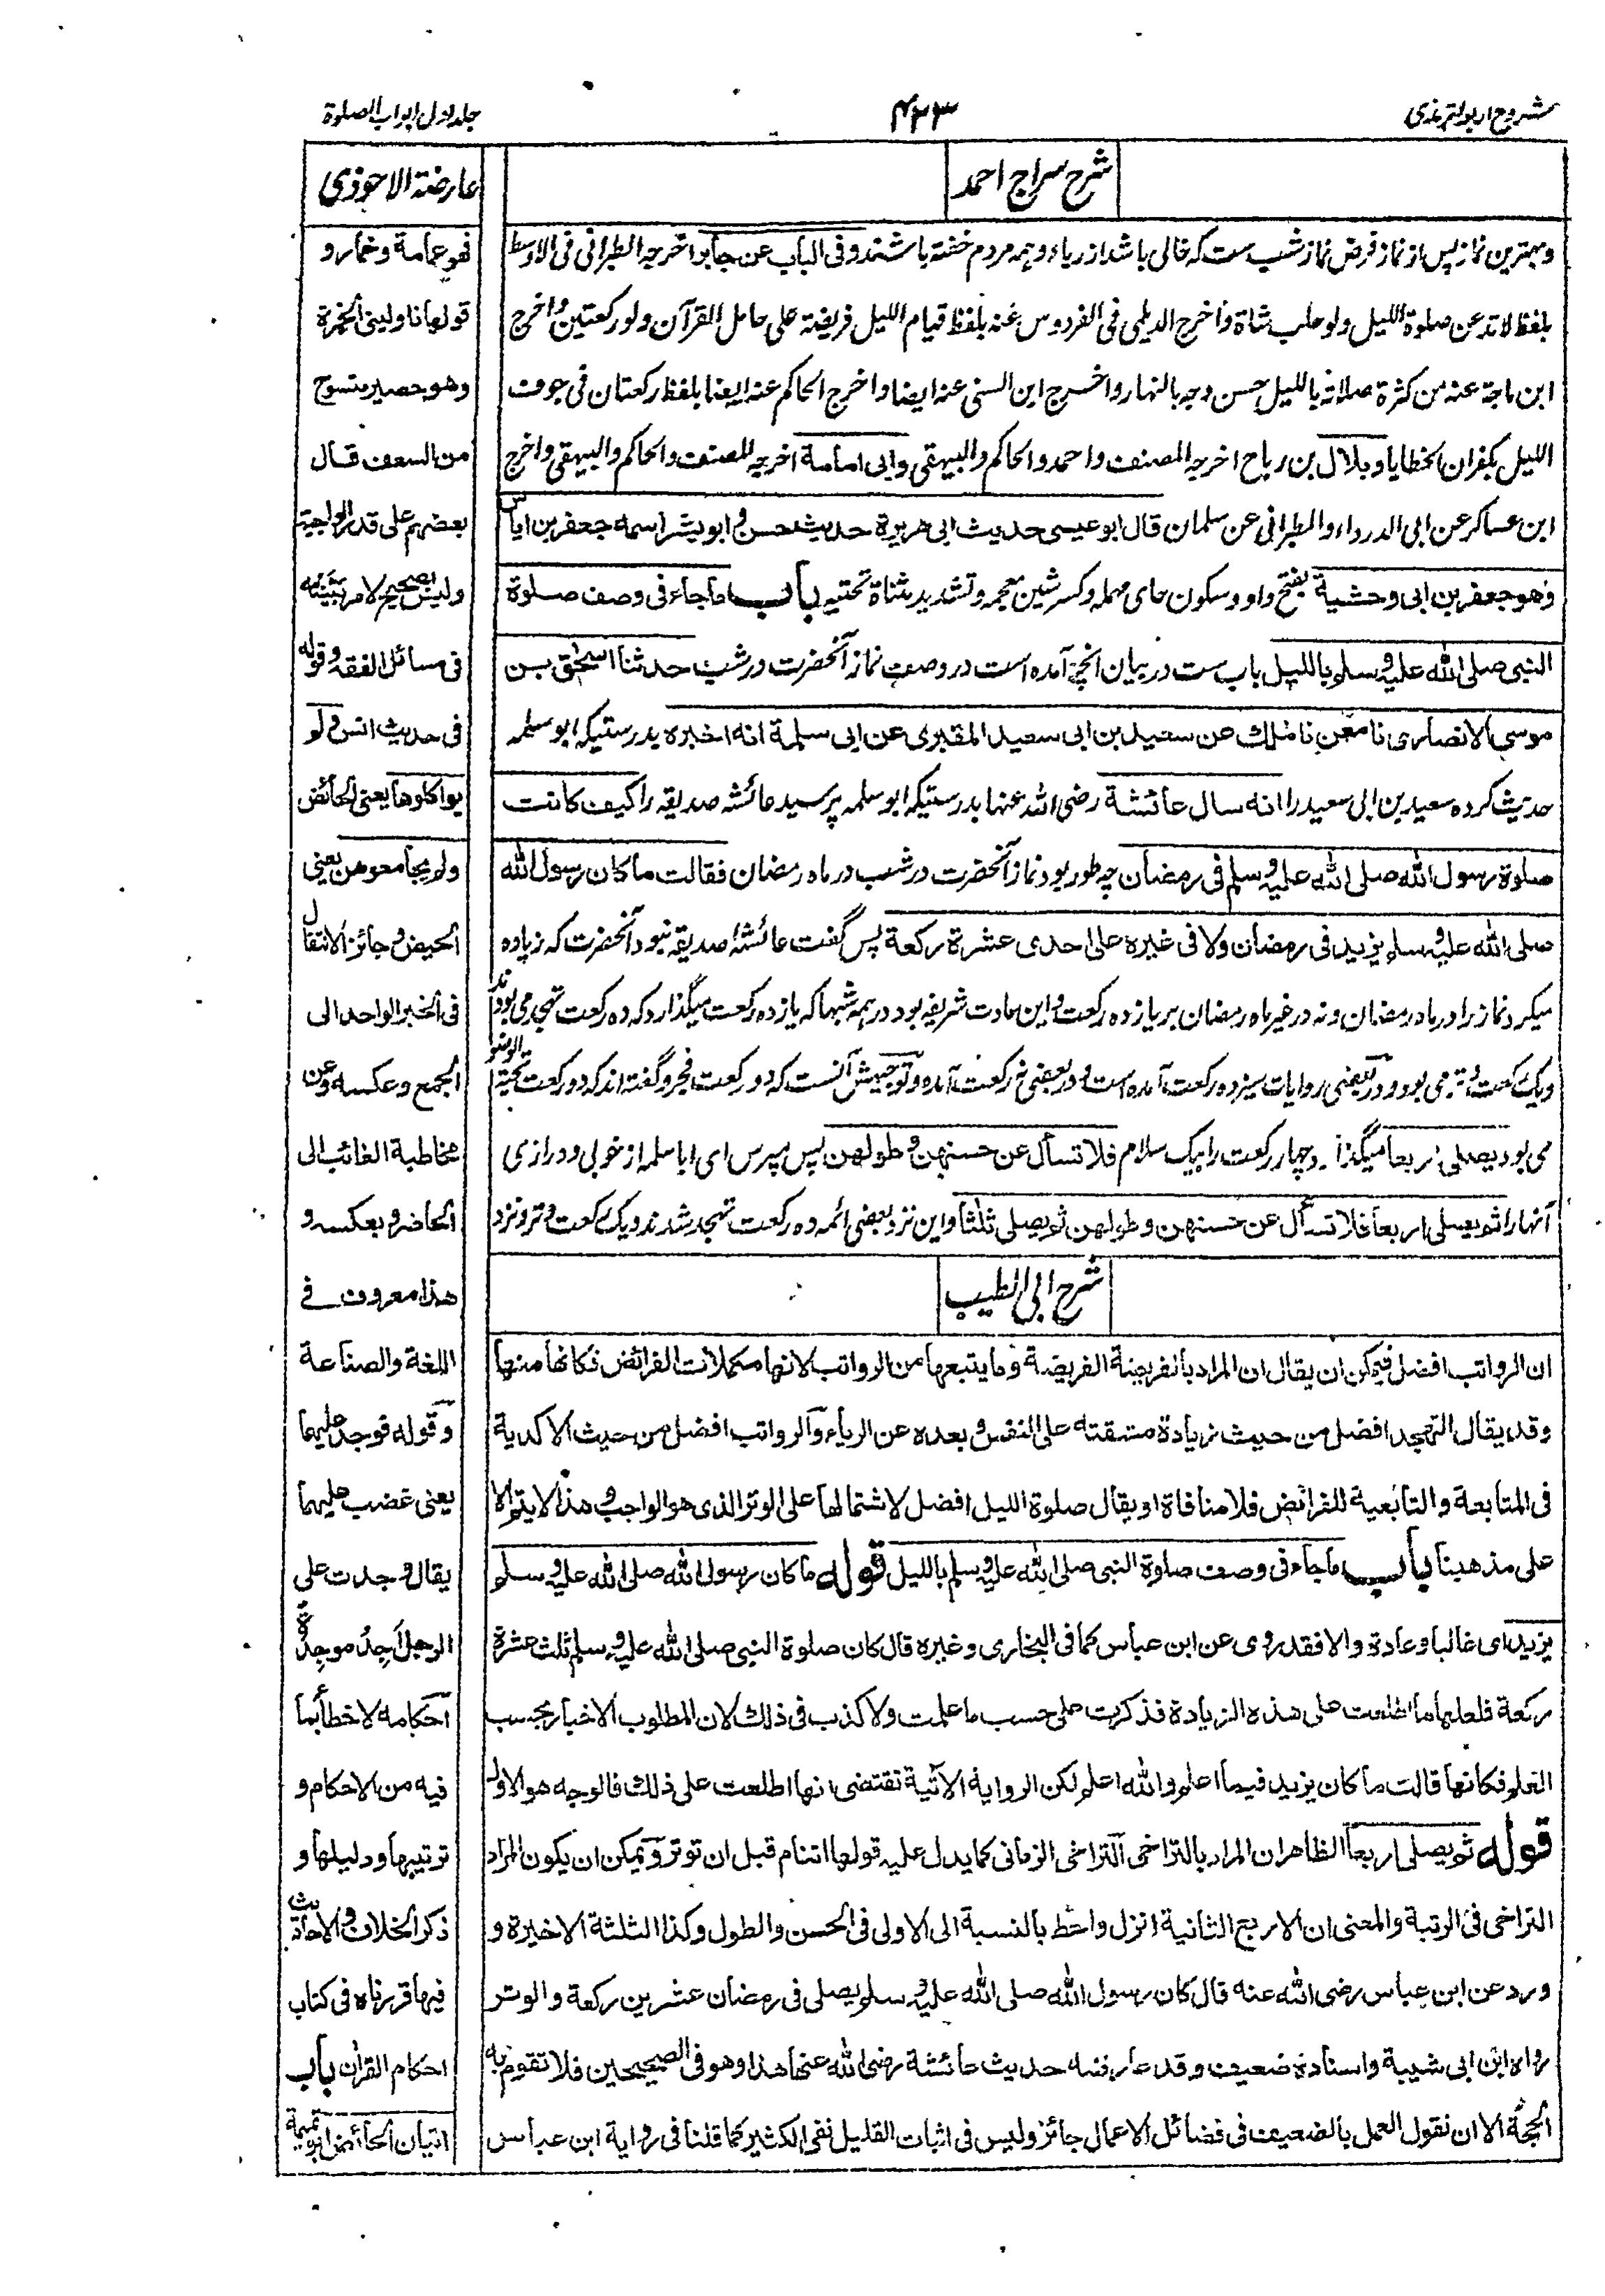 شروح اربعہ ترمذی
۴۲۳
جلد اول ابواب الصلوة
شرح سراج احمد
وبہترین نماز پس از نماز فرض نماز شب ست کہ خالی باشد از ریاء وہمہ مردم خفتہ باشند وفی الباب عن جابر اخرجہ الطبرانی فی الاوسط
بلفظ لا تدعن صلوة اللیل ولو حلب شاة واخرج الدیلمی فی الفردوس عنہ بلفظ قیام اللیل فریضة علی حامل القرآن ولو رکعتین واخرج
ابن ماجة عنہ من کثرة صلاتہ باللیل حسن وجہہ بالنہار واخرج ابن السنی عنہ ایضا واخرج الحاکم عنہ ایضا بلفظ رکعتان فی جوف
اللیل یکفران الخطایا وبلال بن رباح اخرجہ المصنف واحمد والحاکم والبیہقی وابی امامة اخرجہ المصنف والحاکم والبیہقی واخرج
ابن عساکر عن ابی الدرداء والطبرانی عن سلمان قال ابو عیسی حدیث ابی هریرة حدیث حسن وابو بشر اسمه جعفر بن ایاس
وهو جعفر بن ابی وحشیة بفتح واو وسکون حای مہملہ وکسر شین معجمہ وتشدید مثناة تحتیہ باب ما جاء فی وصف صلوة
النبی صلی الله علیه وسلم باللیل باب ست در بیان انچہ آمدہ است در وصف نماز آنحضرت در شب حدثنا اسحق بن
موسی الانصاری نا معن نا ملك عن سعید بن ابی سعید المقبری عن ابی سلمة انه اخبره بدرستیکہ ابو سلمہ
حدیث کردہ سعید بن ابی سعید را انه سال عائشة رضی الله عنها بدرستیکہ ابو سلمہ پرسید عائشہ صدیقہ را کیف کانت
صلوة رسول الله صلی الله علیه وسلم فی رمضان چہ طور بود نماز آنحضرت در شب در ماہ رمضان فقالت ما کان رسول الله
صلی الله علیه وسلم یزید فی رمضان ولا فی غیره علی احدی عشرة رکعة پس گفت عائشہ صدیقہ نبود آنحضرت کہ زیادہ
میکرد نماز را در ماہ رمضان ونہ در غیر ماہ رمضان بر یازدہ رکعت واین عادت شریفہ بود در ہمہ شبہا کہ یازدہ رکعت میگذارد کہ دہ رکعت تہجد می بودند
ویک رکعت وتر می بود ودر بعضی روایات سیزدہ رکعت آمدہ است ودر بعضی رکعت آمدہ وتوجیہش آنست کہ دو رکعت فجر وگفتہ اند کہ دو رکعت تحیة الوضو
می بود یصلی اربعا میگذارد چہار رکعت را بیک سلام فلا تسأل عن حسنهن وطولهن پس مپرس ای ابا سلمہ از خوبی ودرازی
آنہا را ثم یصلی اربعا فلا تسأل عن حسنهن وطولهن ثم یصلی ثلثا واین نزد بعضی ائمہ دہ رکعت تہجد شدند ویک رکعت وتر ونزد
شرح ابی الطیب
ان الرواتب افضل فیمکن ان یقال ان المراد بالفریضة الفریضة وما یتبعها من الرواتب لانها مکملات الفرائض فکانها منها
وقد یقال التهجد افضل من حیث زیادة مشقته علی النفس وبعده عن الریاء والرواتب افضل من حیث الاکدیة
فی المتابعة والتابعیة للفرائض فلا منافاة او یقال صلوة اللیل افضل لاشتمالها علی الوتر الذی هو الواجب وهذا لا یتم الا
علی مذهبنا باب ما جاء فی وصف صلوة النبی صلی الله علیه وسلم باللیل قوله ما کان رسول الله صلی الله علیه وسلم
یزید ای غالبا وعادة والا فقد روی عن ابن عباس کما فی البخاری وغیره قال کان صلوة النبی صلی الله علیه وسلم ثلث عشرة
رکعة فلعلها ما اطلعت علی هذه الزیادة فذکرت علی حسب ما علمت ولا کذب فی ذلك لان المطلوب الاخبار بحسب
العلم فکانها قالت ما کان یزید فیما اعلم والله اعلم لکن الروایة الآتیة تقتضی انها اطلعت علی ذلك فالوجه هو الاول
قوله ثم یصلی اربعا الظاهر ان المراد بالتراخی التراخی الزمانی کما یدل علیه قولها اتنام قبل ان توتر ویمکن ان یکون المراد
التراخی فی الرتبة والمعنی ان الاربع الثانیة انزل واحط بالنسبة الی الاولی فی الحسن والطول وکذا الثلثة الاخیرة و
ورد عن ابن عباس رضی الله عنه قال کان رسول الله صلی الله علیه وسلم یصلی فی رمضان عشرین رکعة والوتر
رواه ابن ابی شیبة واسناده ضعیف وقد عارضه حدیث عائشة رضی الله عنها هذا وهو فی الصحیحین فلا تقوم به
الحجة الا ان نقول العمل بالضعیف فی فضائل الاعمال جائز ولیس فی اثبات القلیل نفی الکثیر کما قلنا فی روایة ابن عباس
عارضة الاحوذی
فهو عمامة وخمار و
قولها ناولینی الخمرة
وهو حصیر منسوج
من السعف قال
بعضهم علی قدر الواجبة
ولیس بصحیح لامر بینته
فی مسائل الفقه وقوله
فی حدیث انس ولم
یواکلوها یعنی الحائض
ولم یجامعوهن یعنی
الحیض وجائز الانتقال
فی الخبر الواحد الی
الجمع وعکسه وعن
مخاطبة الغائب الی
الحاضر وبعکسه و
هذا معروف فی
اللغة والصناعة
وقوله فوجد علیهما
یعنی غضب علیهما
یقال وجدت علی
الرجل اجد موجدة
احکامه لا خطأ بما
فیه من الاحکام و
ترتیبها ودلیلها و
ذکر الخلاف والاحادیث
فیها قررناه فی کتاب
احکام القران باب
اتیان الحائض ابو تمیمة